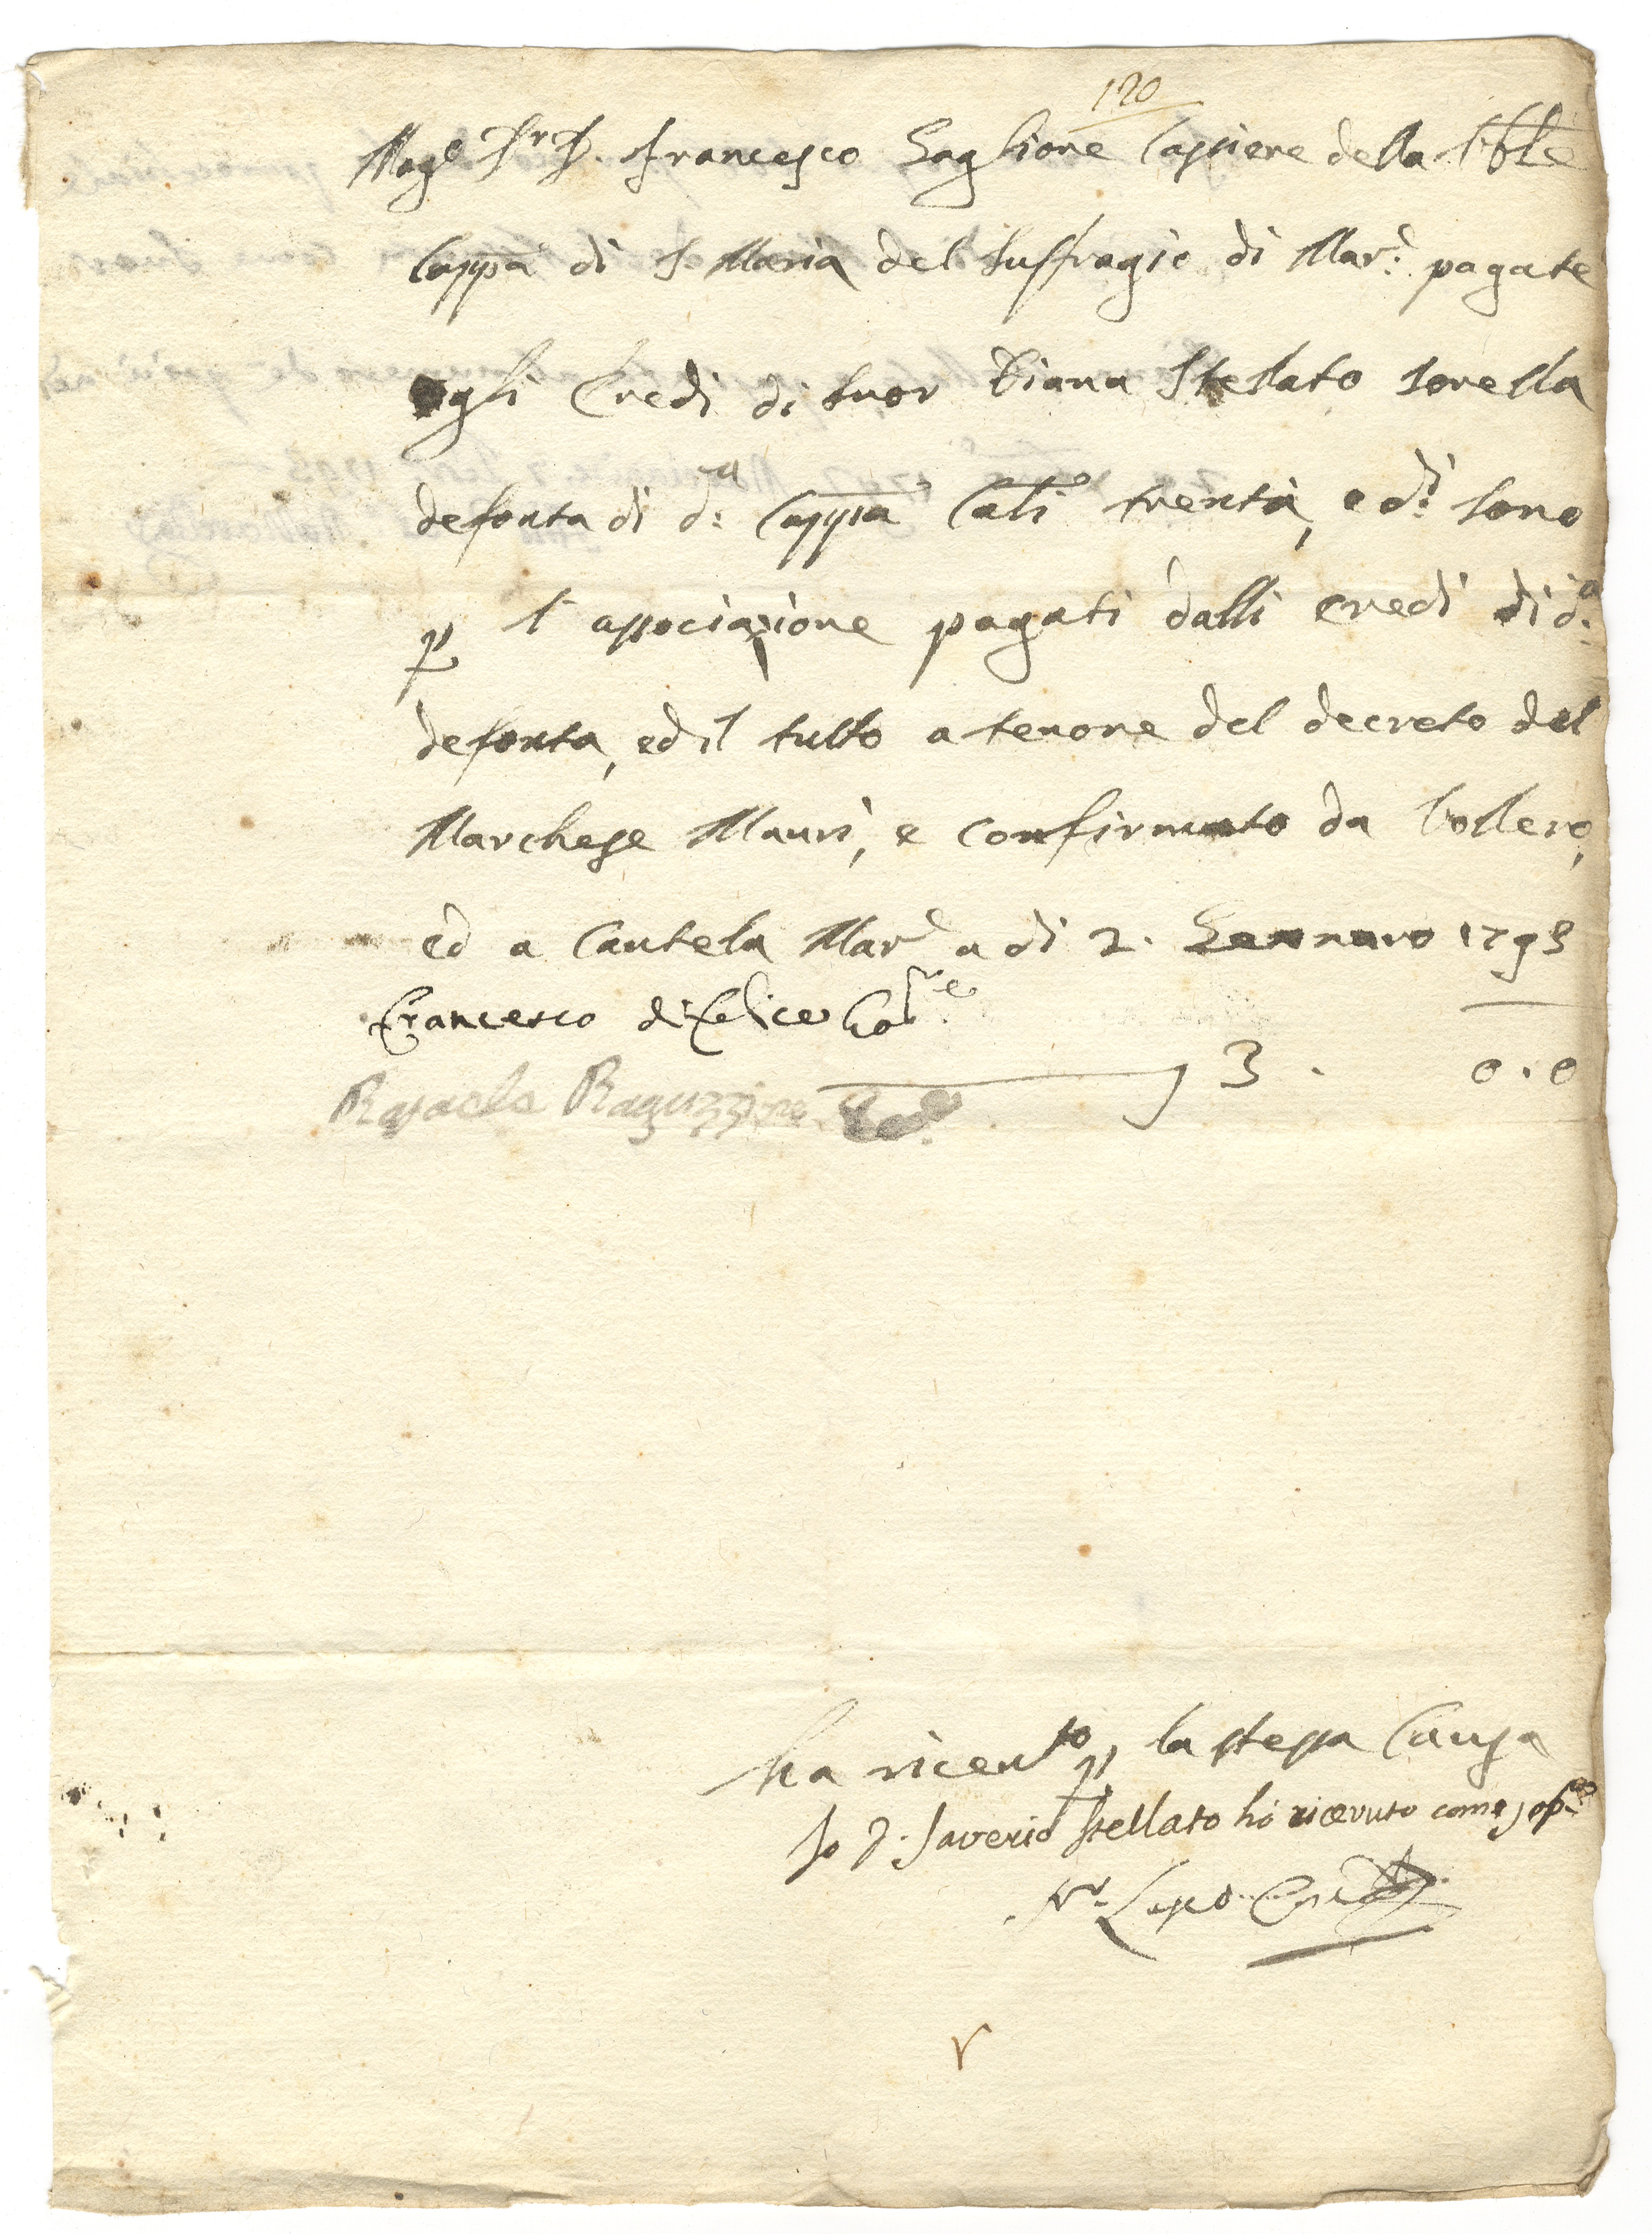 120
Mag.e Sr D. Francesco Gaglione Cassiere della
Cappa di S. Maria del Suffragio di Mar.i pagate
agli Eredi di Suor Diana Stellato sorella
defonta di d.a Cappa Carli trenta, e d.i sono
p l'associazione pagati dalli eredi di d.a
defonta, ed il tutto a tenore del decreto del
Marchese Mauri, e confirmato da Vollero,
ed a Cautela Mar.e a di 2. Gennaro 1793
Francesco di Felice
Rafaele Raguzzino
3. 0.0
ha riceuto p la stessa Causa
Io D. Saverio Stellato hò ricevuto come sop.a